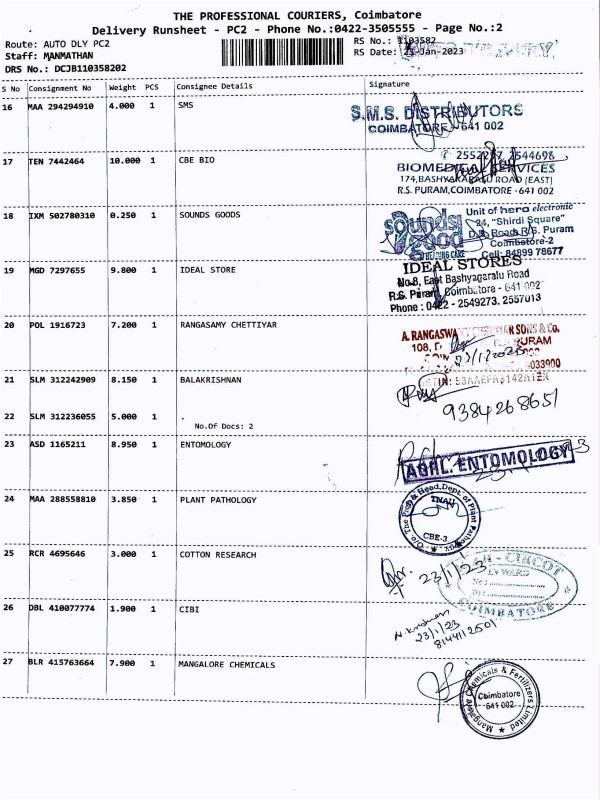 THE PROFESSIONAL COURIERS, Coimbatore
Delivery Runsheet - PC2 - Phone No.:0422-3505555 - Page No.:2
Route: AUTO DLY PC2
Staff: MANMATHAN
DRS No.: DCJB110358202
RS No.: 1103582
RS Date: 23-Jan-2023
S No Consignment No Weight PCS Consignee Details Signature
16 MAA 294294910 4.000 1 SMS
S.M.S. DISTRIBUTORS
COIMBATORE - 641 002
17 TEN 7442464 10.000 1 CBE BIO
2544696
BIOMEDICAL SERVICES
174, BASHYAKARALU ROAD (EAST)
R.S. PURAM, COIMBATORE - 641 002
18 IXM 502780310 0.250 1 SOUNDS GOODS
sounds good
HEARING CARE
Unit of hero electronic
24, "Shirdi Square"
D.B. Road, R.S. Puram
Coimbatore-2
Cell: 84899 78677
19 MGD 7297655 9.800 1 IDEAL STORE
IDEAL STORES
No.8, East Bashyagaralu Road
R.S. Puram, Coimbatore - 641 002
Phone : 0422 - 2549273, 2557013
20 POL 1916723 7.200 1 RANGASAMY CHETTIYAR
A. RANGASWAMY CHETTIAR SONS & Co.
108,
PURAM
23/1/2023
21 SLM 312242909 8.150 1 BALAKRISHNAN
9384268651
22 SLM 312236055 5.000 1 .
No.Of Docs: 2
23 ASD 1165211 8.950 1 ENTOMOLOGY
AGRL. ENTOMOLOGY
24 MAA 288558810 3.850 1 PLANT PATHOLOGY
O/o The Prof & Head, Dept. of Plant Pathology
TNAU
CBE-3
25 RCR 4695646 3.000 1 COTTON RESEARCH
23/1/23
CIRCOT
COIMBATORE
26 DBL 410077774 1.900 1 CIBI
23/1/23
8144112501
27 BLR 415763664 7.900 1 MANGALORE CHEMICALS
Mangalore Chemicals & Fertilizers Limited
Coimbatore
641 002